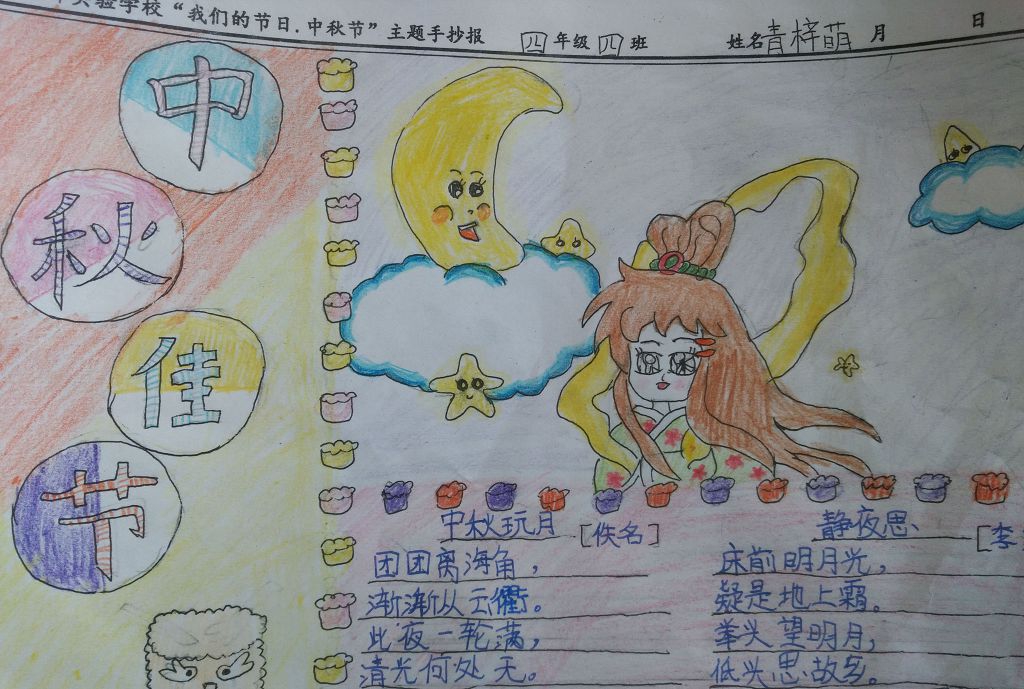 实验学校“我们的节日.中秋节”主题手抄报 四年级四班 姓名青梓萌 月 日
中
秋
佳
节
中秋玩月 [佚名]
团团离海角，
渐渐从云衢。
此夜一轮满，
清光何处无。
静夜思 [李
床前明月光，
疑是地上霜。
举头望明月，
低头思故乡。